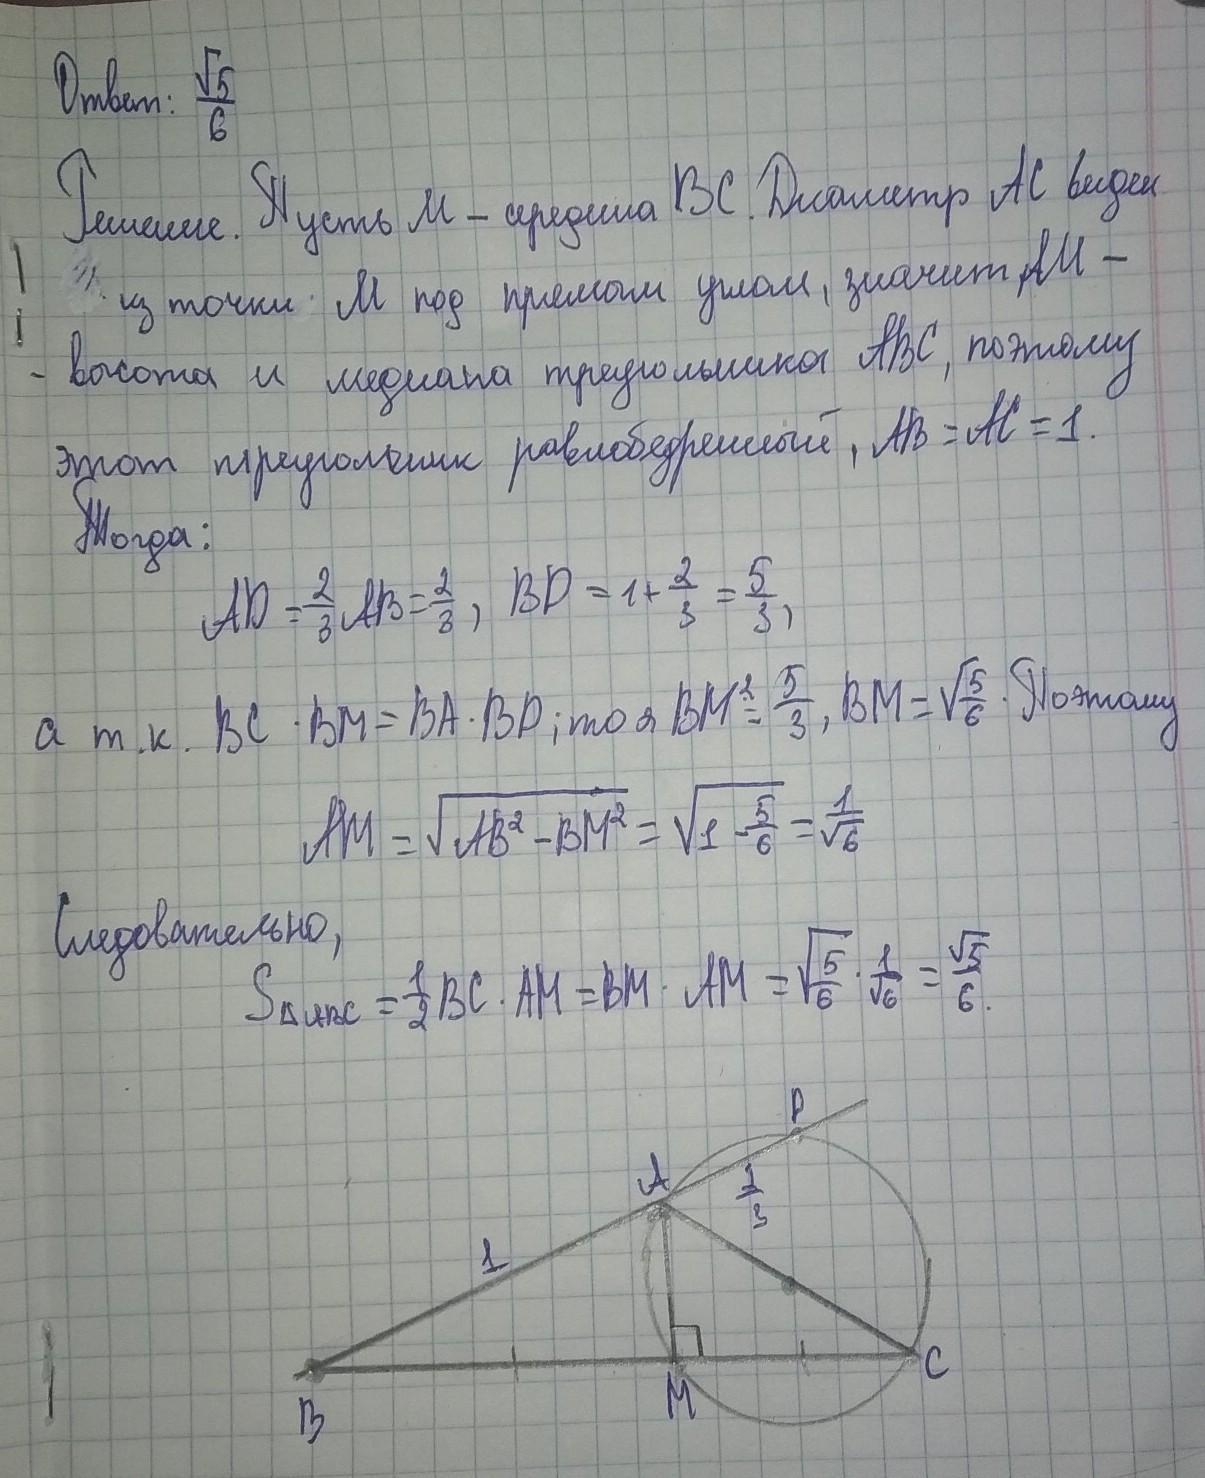 Ответ: √5/6
Решение. Пусть М – середина ВС. Диаметр АС виден
из точки М под прямым углом, значит, АМ –
- высота и медиана треугольника АВС, поэтому
этот треугольник равнобедренный, АВ = АС = 1.
Тогда:
AD = 2/3 AB = 2/3, BD = 1 + 2/3 = 5/3,
а т.к. BC · BM = BA · BD, то 2BM² = 5/3, BM = √5/6. Поэтому
AM = √AB² - BM² = √1 - 5/6 = 1/√6
Следовательно,
S△ABC = 1/2 BC · AM = BM · AM = √5/6 · 1/√6 = √5/6.
D
A
2/3
1
B
M
C